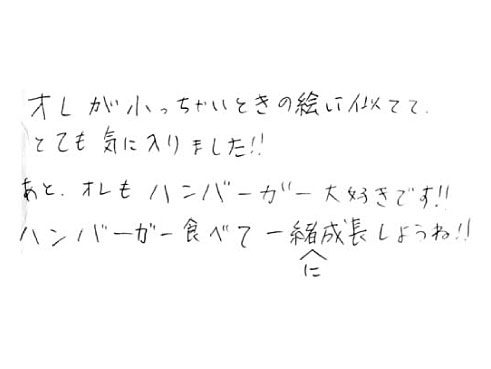 オレが小っちゃいときの絵に似てて、
とても気に入りました!!
あと、オレもハンバーガー大好きです!!
ハンバーガー食べて一緒に成長しようね!!